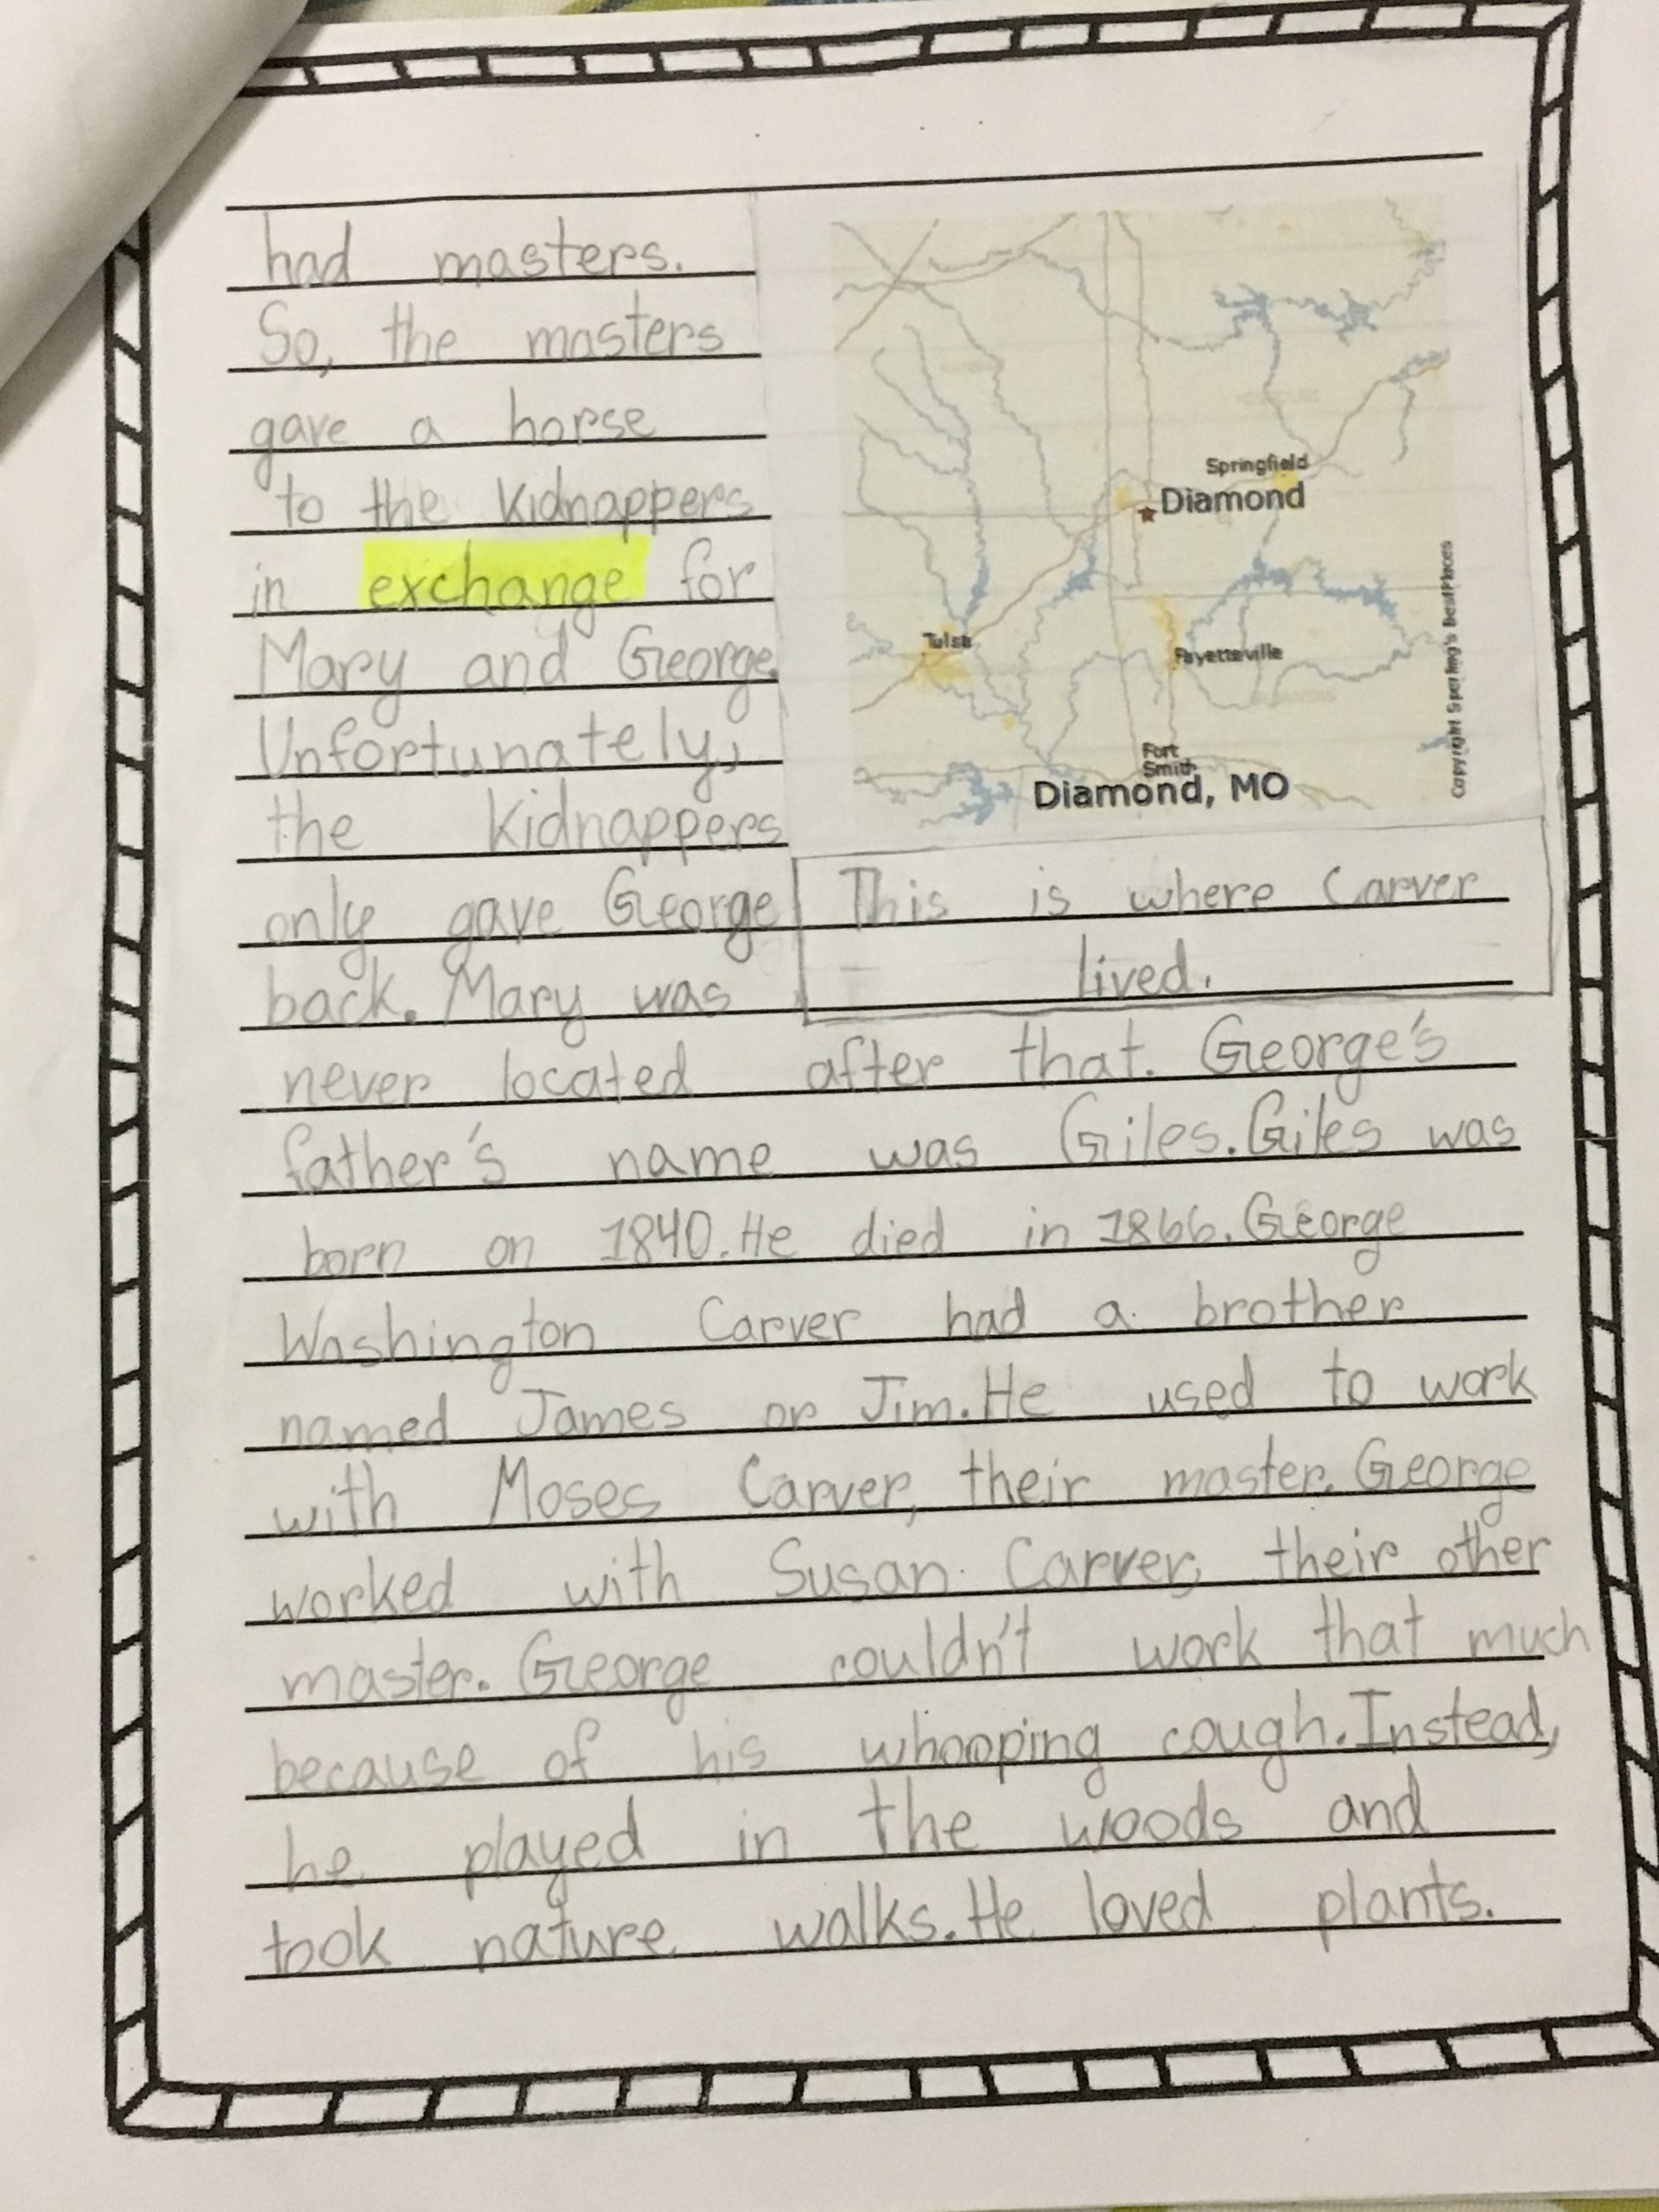 had masters.
So, the masters
gave a horse
to the kidnappers
in exchange for
Mary and George.
Unfortunately,
the kidnappers
only gave George
back. Mary was
Springfield
Diamond
Tulsa
Fayetteville
Fort
Smith
Diamond, MO
Copyright Sperling's BestPlaces
This is where Carver
lived.
never located after that. George's
father's name was Giles. Giles was
born on 1840. He died in 1866. George
Washington Carver had a brother
named James or Jim. He used to work
with Moses Carver, their master. George
worked with Susan Carver, their other
master. George couldn't work that much
because of his whooping cough. Instead,
he played in the woods and
took nature walks. He loved plants.